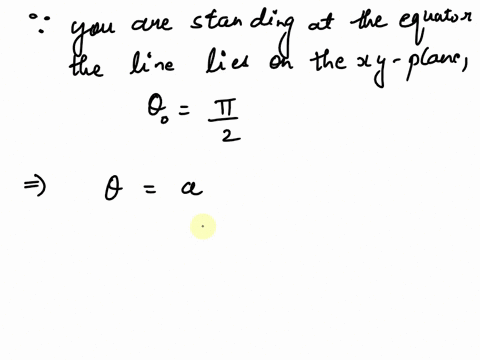 ∵ you are standing at the equator
the line lies on the xy-plane,
θ₀ = π/2
⇒ θ = a